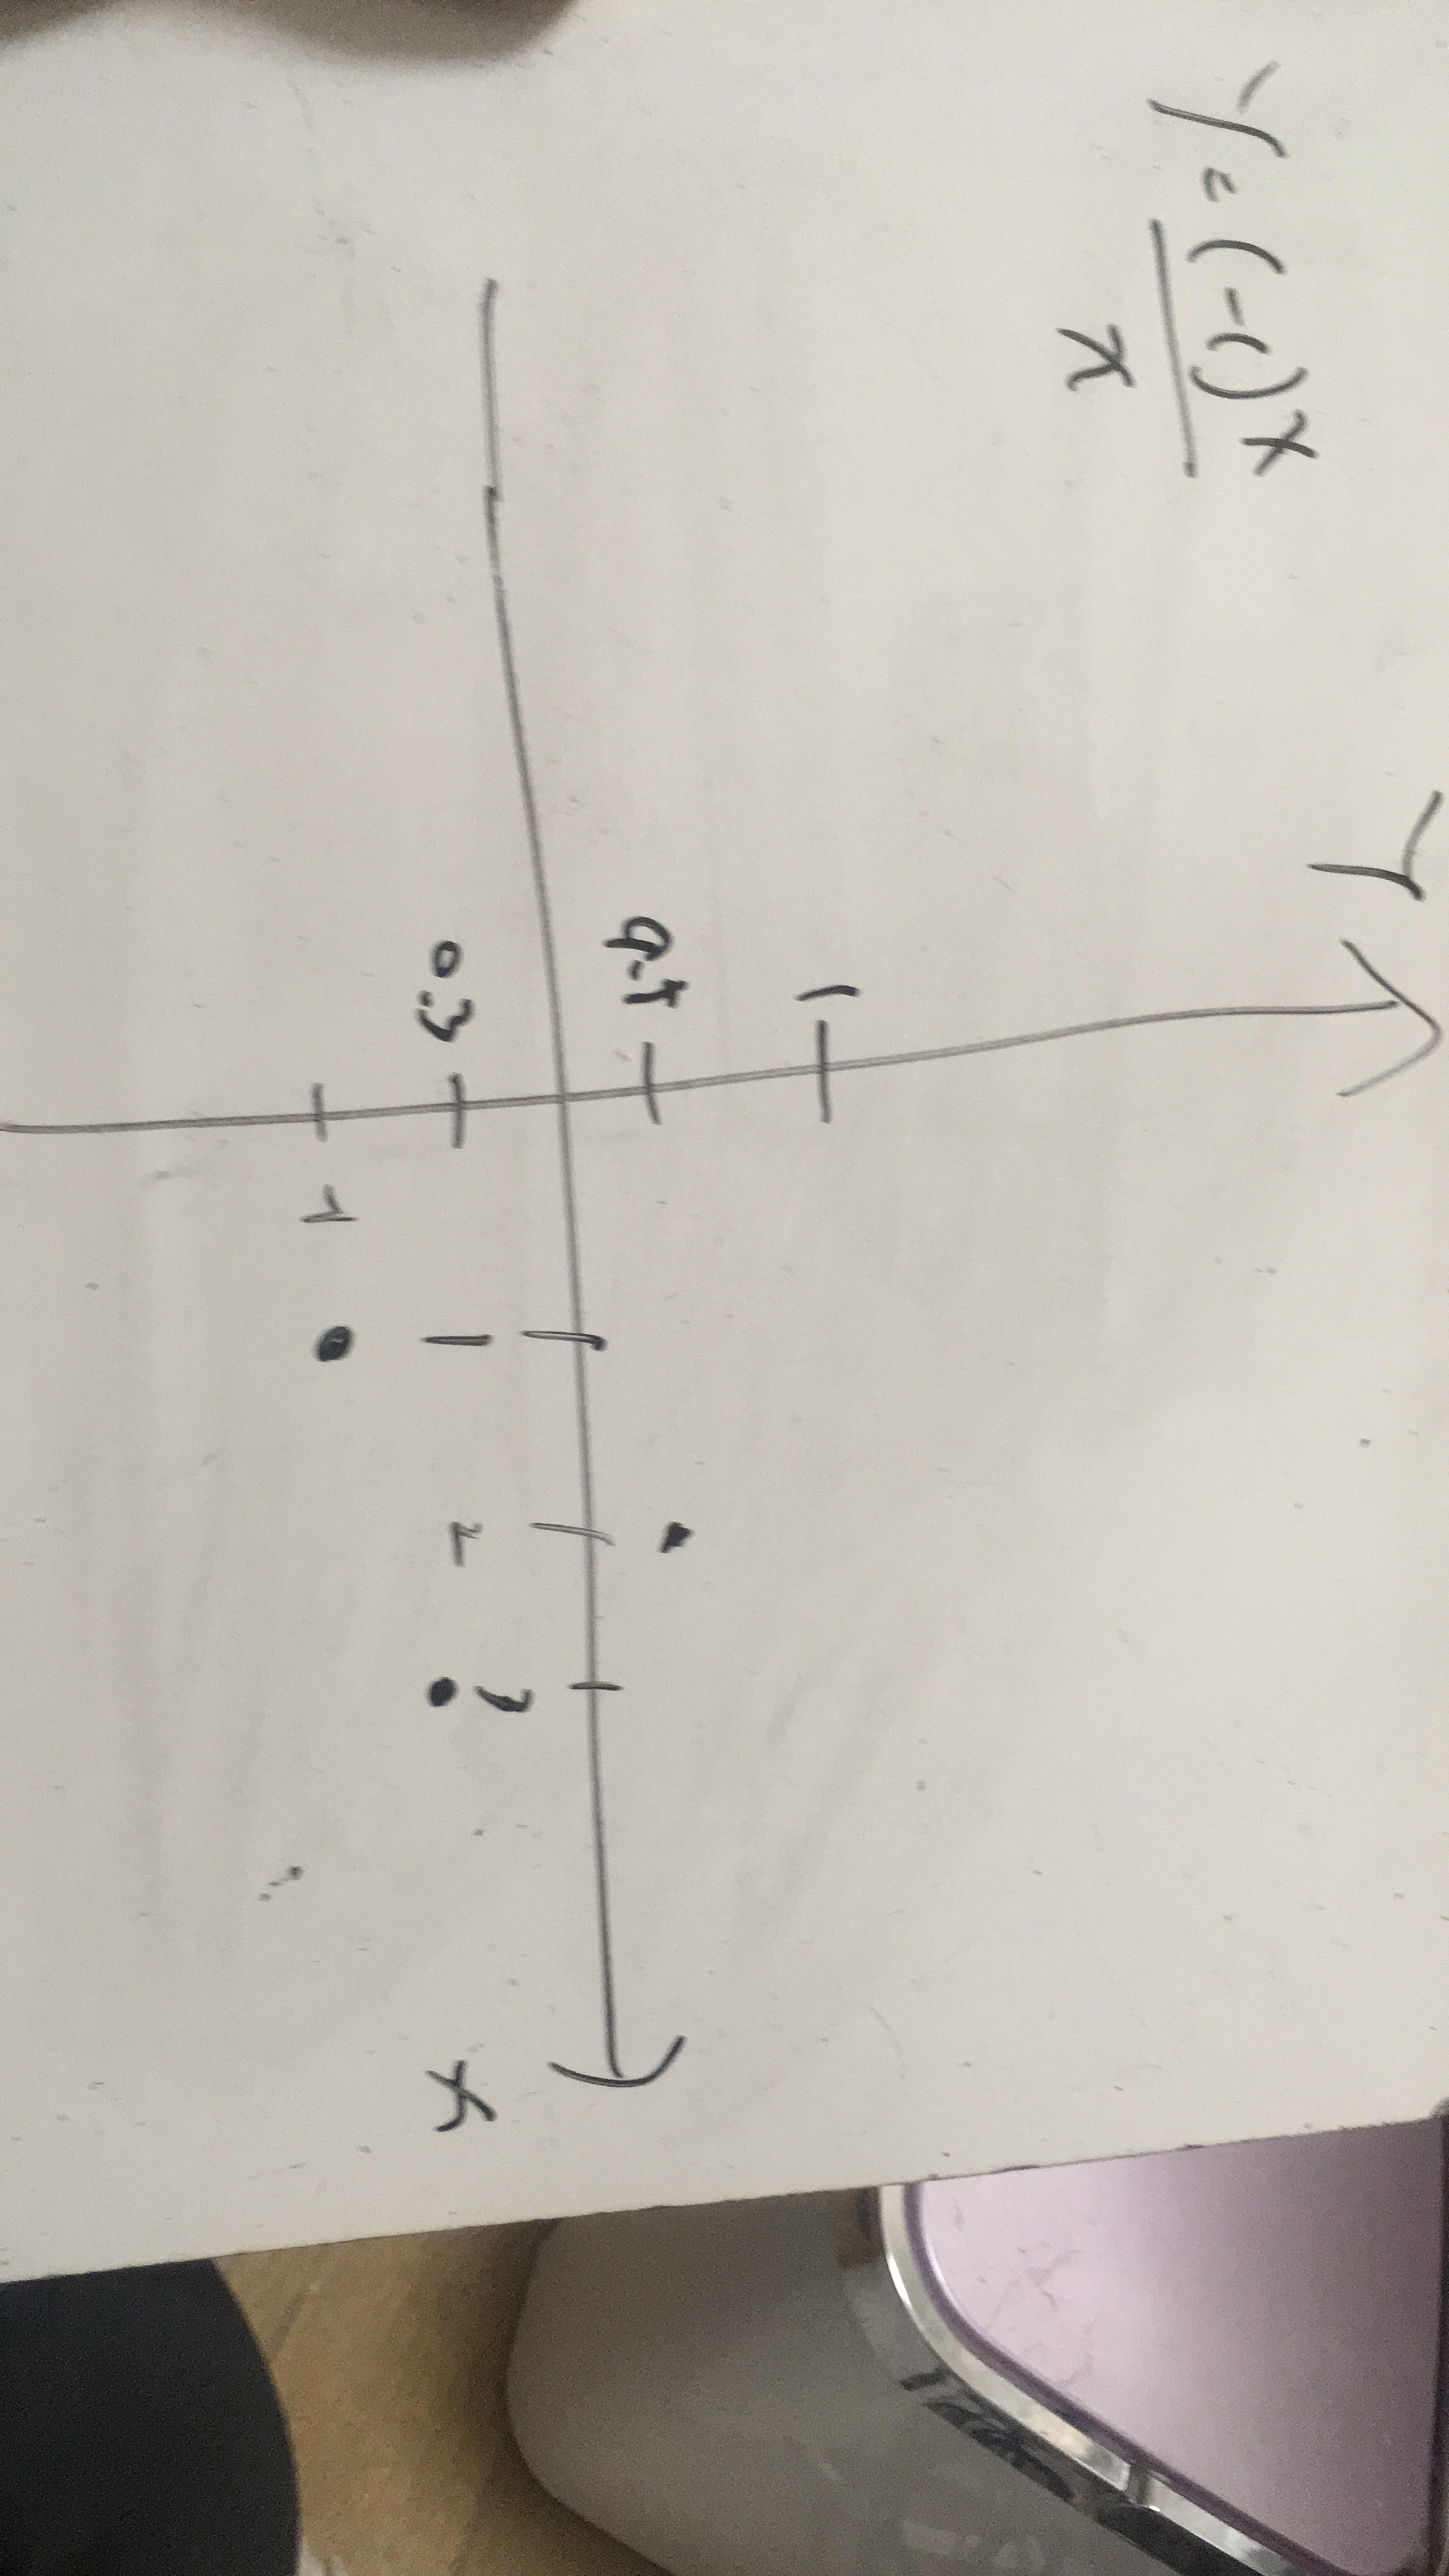 y = (-1)^x
x
y
1
0.5
0.3
-1
1 2 3
x